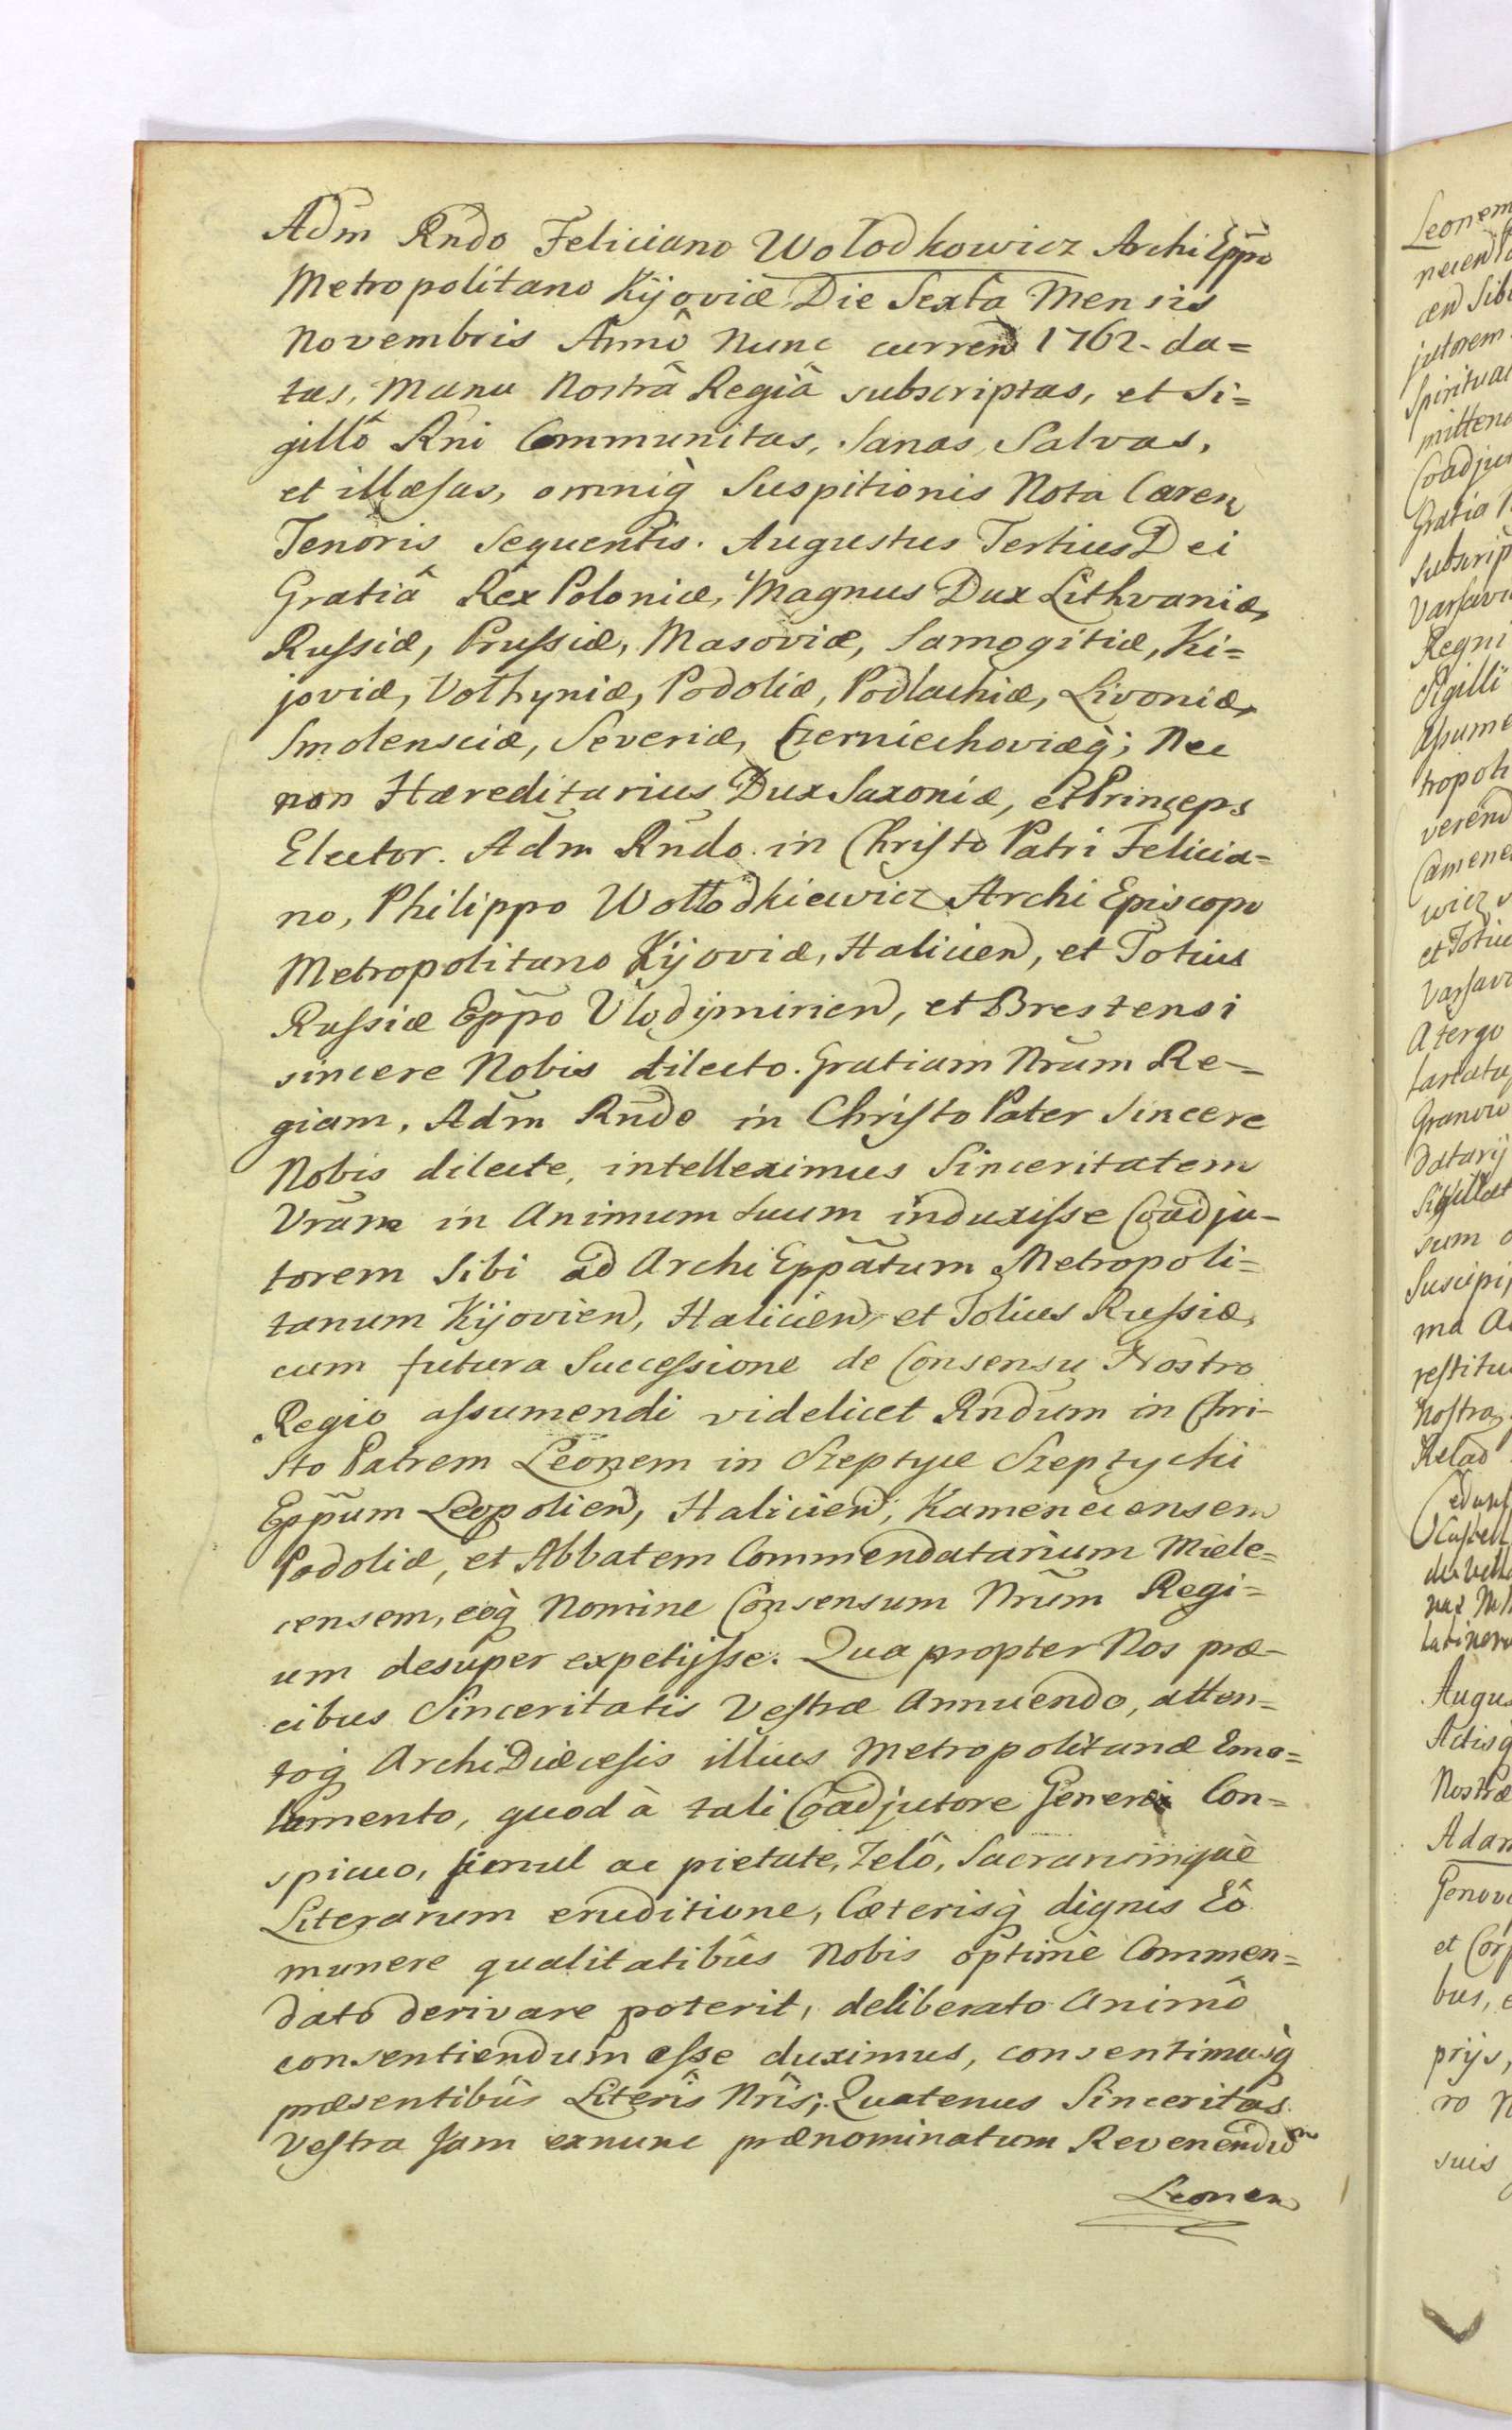 Adm Rndo Feliciano Wolodkowicz Archi Eppo
Metropolitano Kijoviæ Die Sexta Mensis
Novembris Annô Nunc curren 1762. da=
tas, Manu Nostrâ Regiâ subscriptas, et Si=
gillô Rni Communitas, Sanas, Salvas,
et illæsas, omniq̀ Suspitionis Nota Caren
Tenoris Sequentis. Augustus Tertius Dei
Gratiâ Rex Poloniæ, Magnus Dux Lithvaniæ,
Russiæ, Prussiæ, Masoviæ, Samogitiæ, Ki=
joviæ, Volhyniæ, Podoliæ, Podlachiæ, Livoniæ,
Smolensciæ, Severiæ, Czerniechoviæq̀; Nec
non Hæreditarius Dux Saxoniæ, et Princeps
Elector. Adm Rndo in Christo Patri Felicia=
no, Philippo Wollodkiewicz Archi Episcopo
Metropolitano Kijoviæ, Halicien, et Totius
Russiæ Eppo Vlodijmirien, et Brestensi
sincere Nobis dilecto. Gratiam Nram Re=
giam. Adm Rndo in Christo Pater Sincere
Nobis dilecte, intelleximus Sinceritatem
Vram in Animum suum induxisse Coadju-
torem Sibi ad Archi Eppatum Metropoli=
tanum Kijovien, Halicien, et Totius Russiæ,
cum futura Successione de Consensu Nostro
Regio assumendi videlicet Rndum in Chri-
sto Patrem Leonem in Szeptyce Szeptycki
Eppum Leopolien, Halicien, Kamenecensem
Podoliæ, et Abbatem Commendatarium Miele=
censem, eoq̀ Nomine Consensum Nrum Regi=
um desuper expetijsse. Qua propter Nos præ-
cibus Sinceritatis Vestræ Annuendo, atten=
toq̀ Archi Diæcesis illius Metropolitanæ Emo=
lumento, quod à tali Coadjutore Genere Con=
spicuo, simul ac pietate, Zelô, Sacrarumque
Literarum eruditione, Cæterisq̀ dignis Eô
munere qualitatibûs Nobis optimè Commen=
dato derivare poterit, deliberato Animô
consentiendum esse duximus, consentimusq̀
præsentibûs Literîs Nrîs; Quatenus Sinceritas
Vestra Jam exnunc prænominatum Reverendum
Leonem